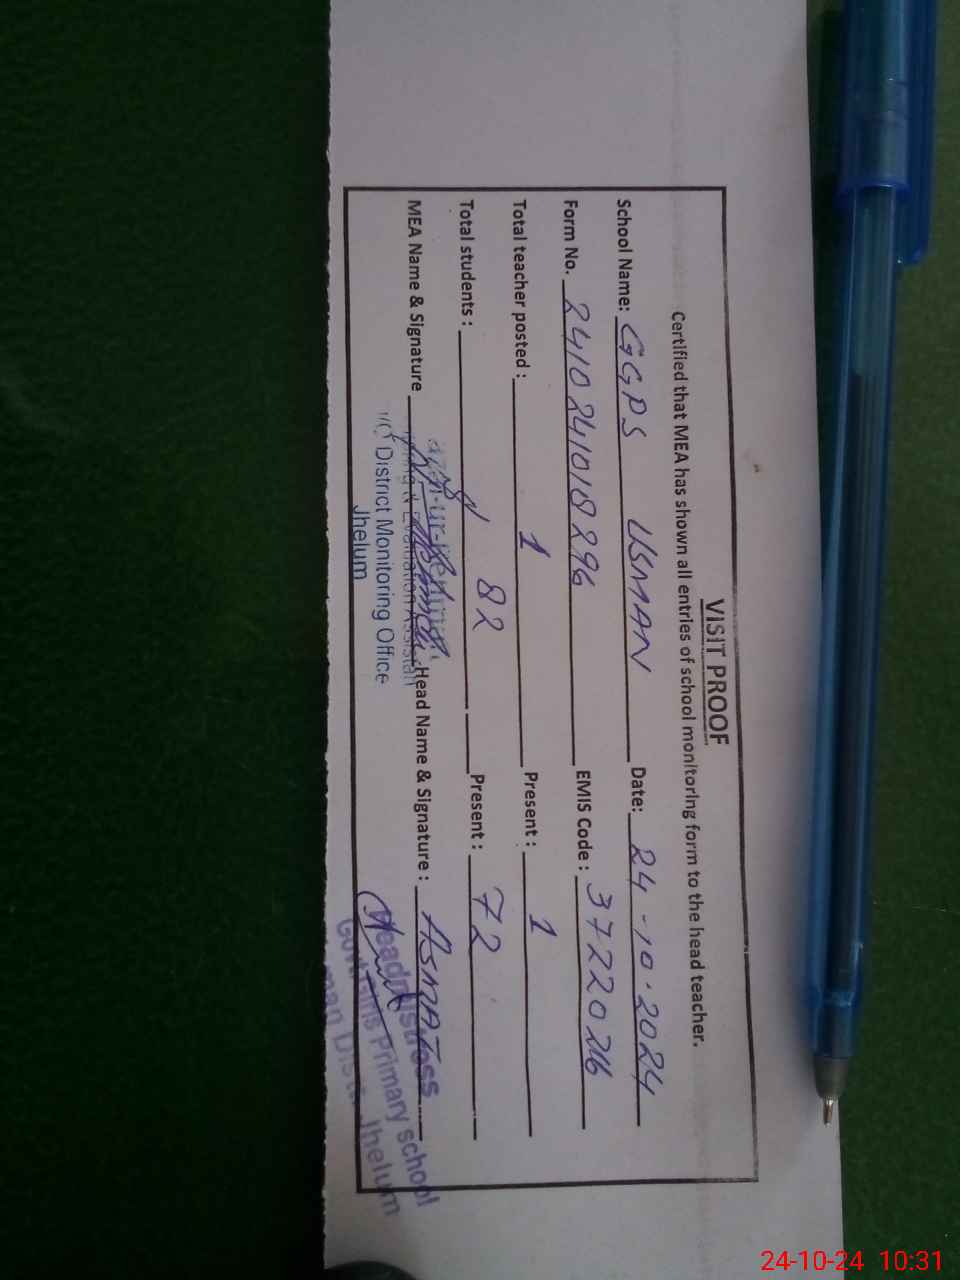 VISIT PROOF
Certified that MEA has shown all entries of school monitoring form to the head teacher.
School Name: GGPS USMAN Date: 24-10-2024
Form No. 241024101018296 EMIS Code: 37220216
Total teacher posted: 1 Present: 1
Total students: 82 Present: 72
MEA Name & Signature Head Name & Signature:
District Monitoring Office
Jhelum
Headmistress
Govt. Girls Primary school
Distt. Jhelum
24-10-24 10:31